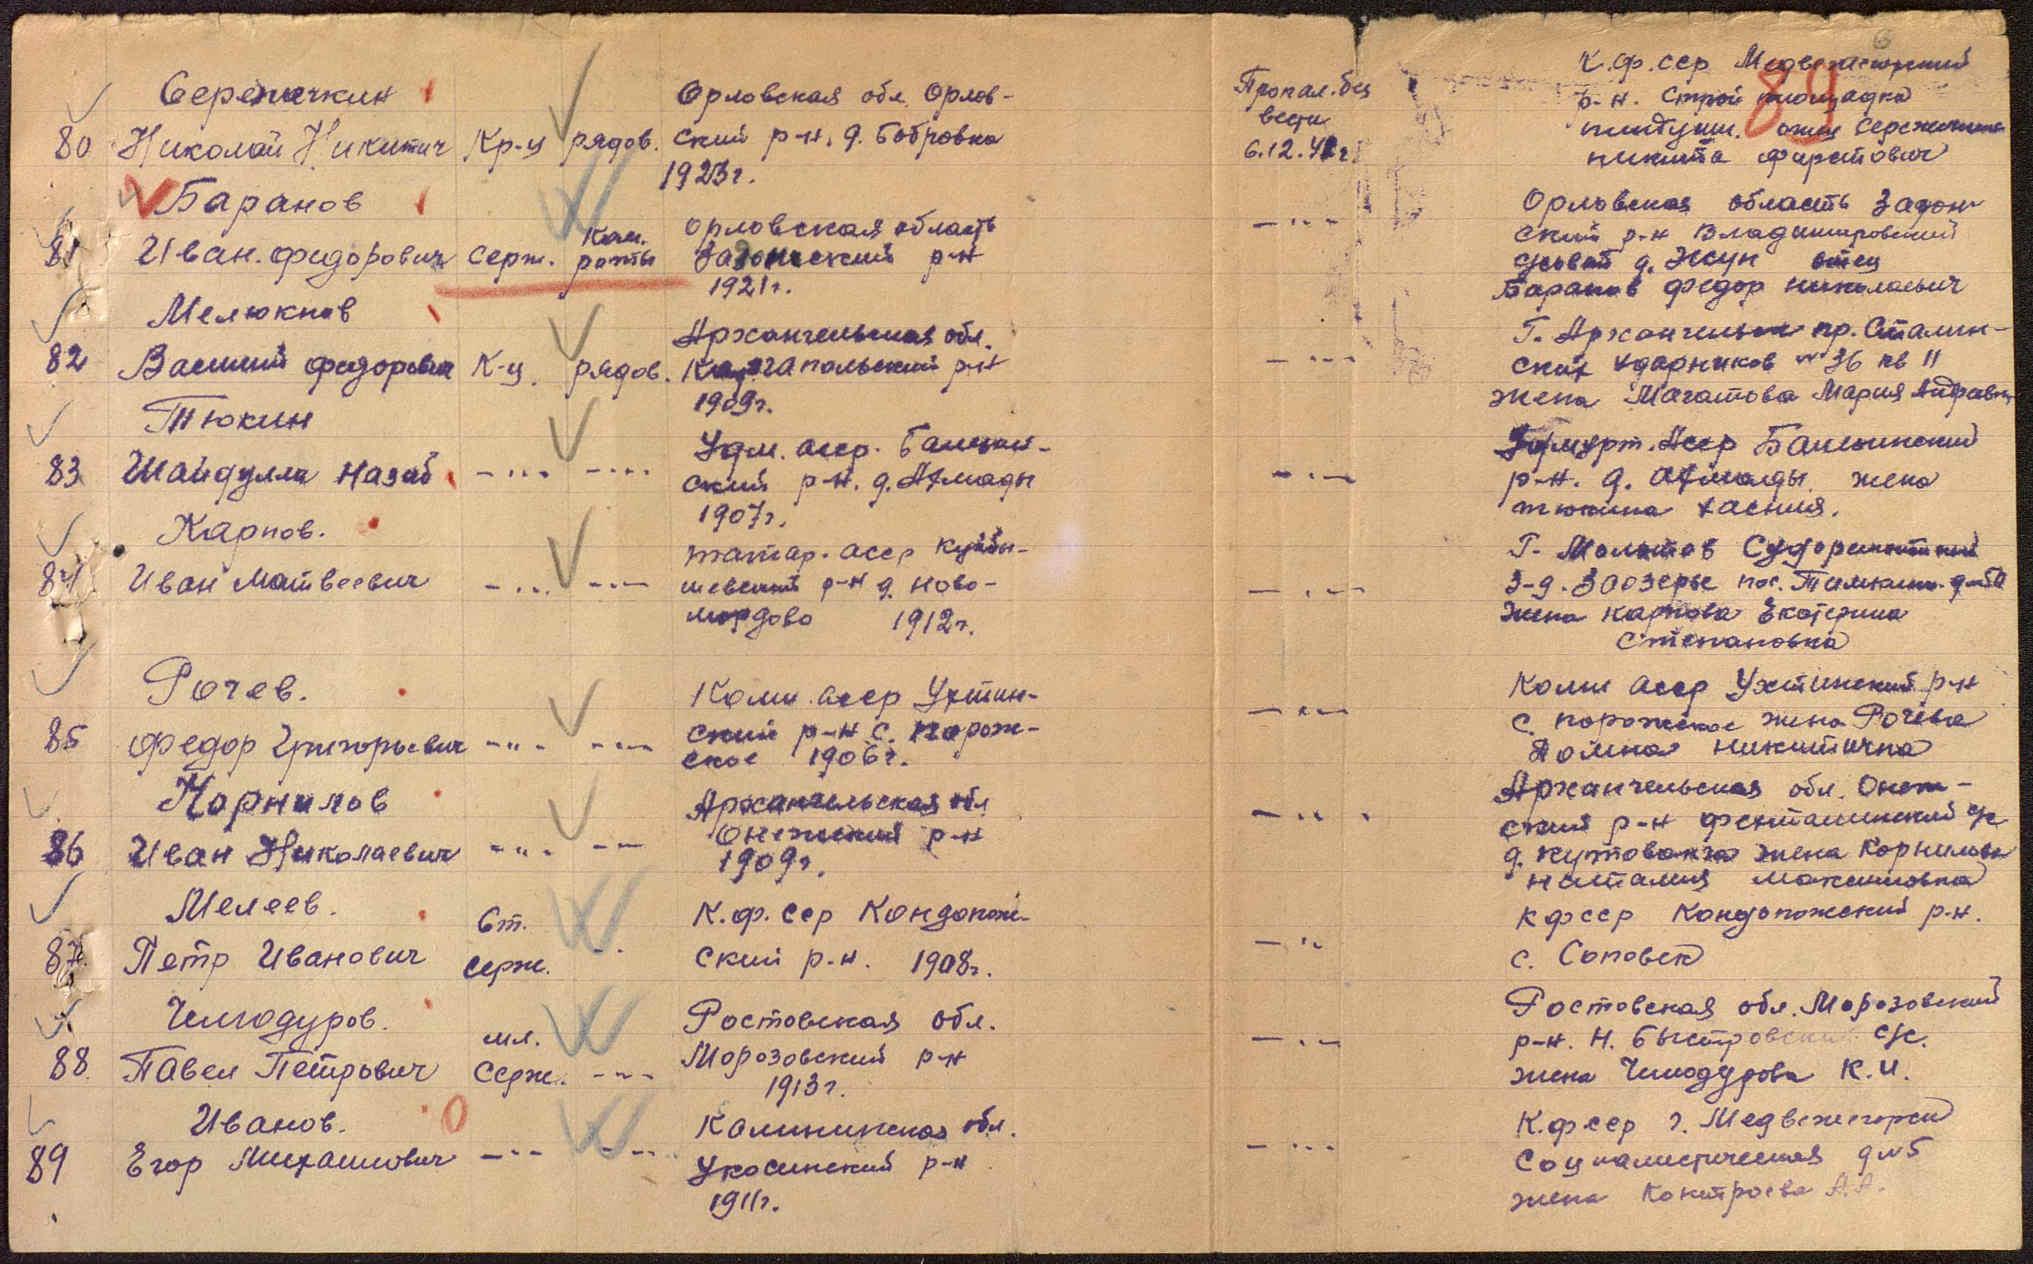 89
80
Николай Никитич
Кр-ц
рядов.
Орловская обл. Орлов-
ский р-н. д. Бобровка
1923г.
Пропал. без
вести
6.12.41г.
К.ф.сср
р-н. Строй площадка
отец
никита
81
Баранов
Иван. федорович
Серж.
Ком.
роты
Орловская область
Задонский р-н
1921г.
- " -
Орловская область Задон-
ский р-н Владимировский
отец
Баранов федор николаевич
82
Василий федорович
К-ц.
рядов.
Архангельская обл.
Каргапольский р-н
1909г.
- " -
Г. Архангельск пр. Сталин-
ских ударников № 36 кв 11
жена Мария
83
Тюкин
Шайдулла
- " -
- " -
Удм. асср.
ский р-н. д.
1907г.
- " -
Удмурт. Асср
р-н. д. жена
тюкина хасния.
84
Карпов.
Иван Матвеевич
- " -
- " -
татар. асср куйбы-
шевский р-н д. ново-
мордово 1912г.
- " -
Г. Молотов Судоремонтный
з-д. Заозерье пос.
жена карпова Екатерина
Степановна
85
Рочев.
федор Григорьевич
- " -
- " -
Коми асср Ухтин-
ский р-н с. порож-
ское 1906г.
- " -
Коми асср Ухтинский р-н
с. порожское жена Рочева
Домна никитична
86
Корнилов
Иван Николаевич
- " -
- " -
Архангельская обл
Онежский р-н
1909г.
- " -
Архангельская обл. Онеж-
ский р-н с/с
д. жена Корнилова
наталия максимовна
87
Мелеев.
Петр Иванович
Ст.
серж.
- " -
К.ф.сср Кондопож-
ский р-н. 1908г.
- " -
К ф сср Кондопожский р-н.
с. Соповек
88
Чемодуров.
Павел Петрович
мл.
Серж.
- " -
Ростовская обл.
Морозовский р-н
1913г.
- " -
Ростовская обл. Морозовский
р-н. Н. Быстровский с/с.
жена Чемодурова К.И.
89
Иванов.
Егор Михайлович
- " -
- " -
Калининская обл.
р-н
1911г.
- " -
К.ф сср г. Медвежегорск
Социалистическая д № 5
жена А.А.